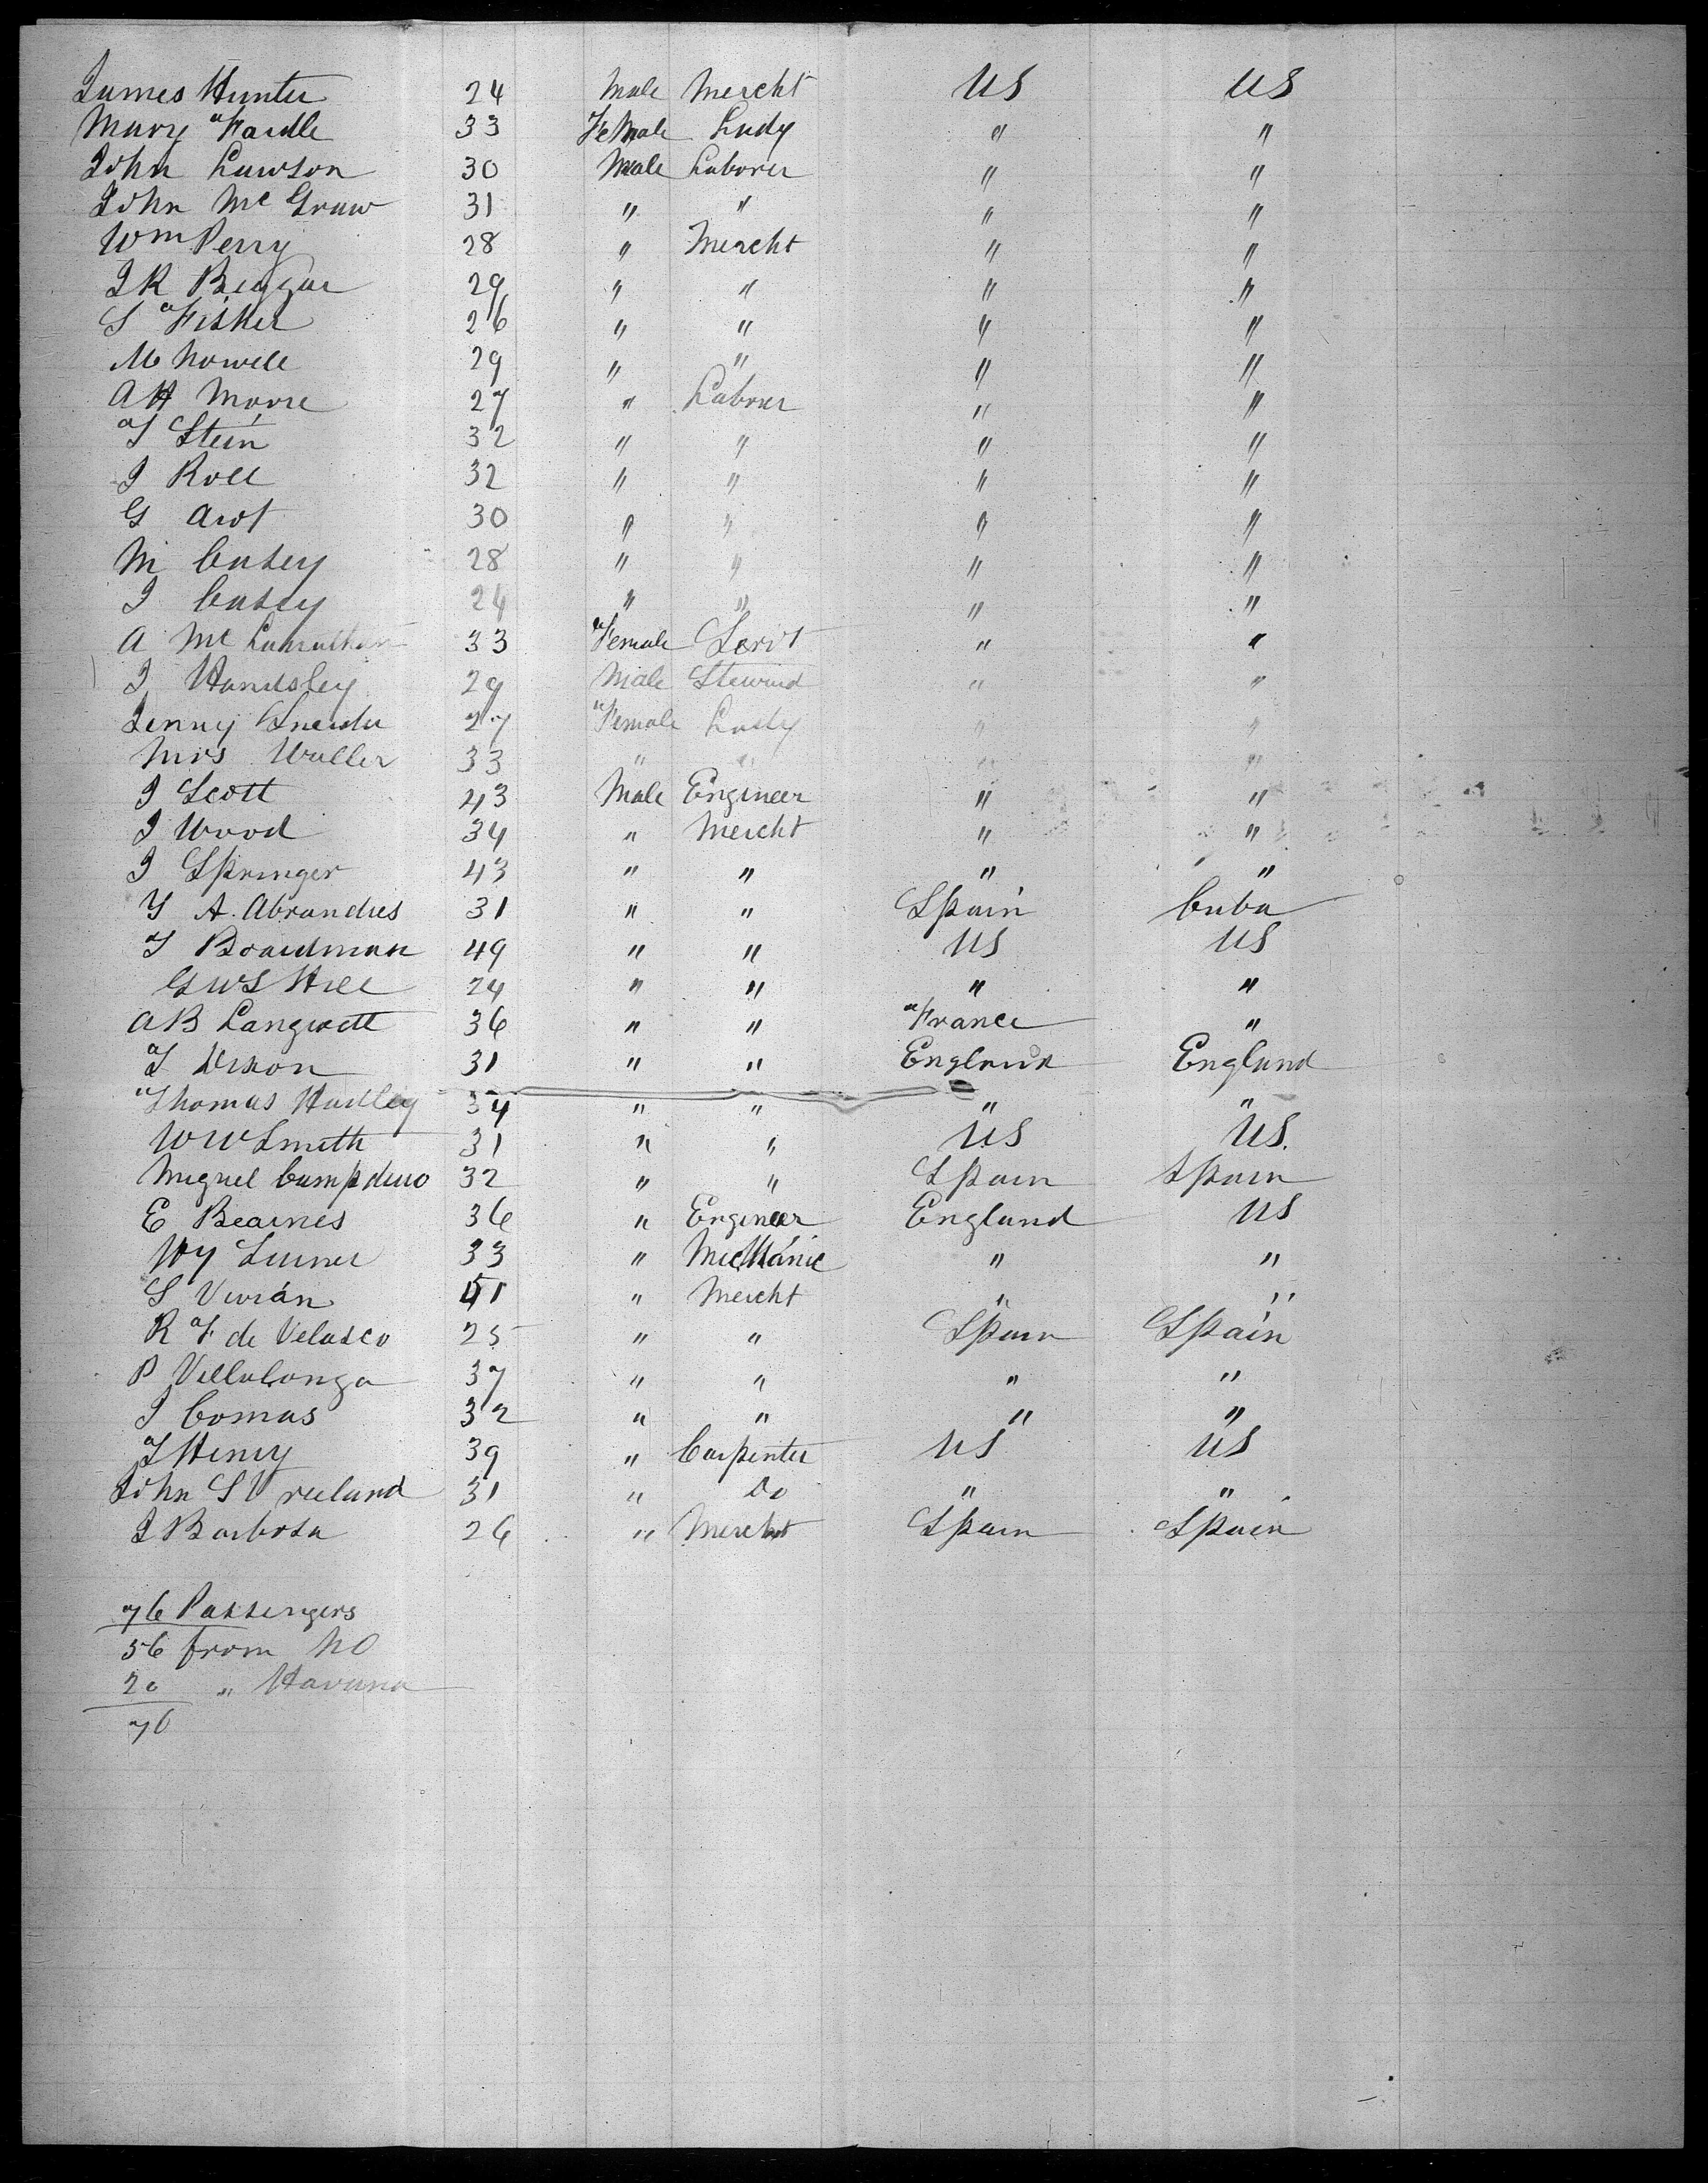 James Hunter 24 Male Mercht US US
Mary Fardle 33 Female Lady " "
John Lawson 30 Male Laborer " "
John Mc Graw 31 " " " "
Wm Perry 28 " Mercht " "
J R Beggar 29 " " " "
S Fisher 26 " " " "
M Nowell 29 " " " "
A H Moore 27 " Laborer " "
T Stein 32 " " " "
J Roll 32 " " " "
G Arot 30 " " " "
M Casey 28 " " " "
J Casey 24 " " " "
A Mc 33 Female Servt " "
J Handsley 29 Male Steward " "
Jenny Sneider 27 Female Lady " "
Mrs Waller 33 " " " "
J Scott 43 Male Engineer " "
J Wood 34 " Mercht " "
J Springer 43 " " " "
Y A. Abrandies 31 " " Spain Cuba
T Boardman 49 " " US US
G W S Hill 24 " " " "
A B Langwell 36 " " France "
T Dixon 31 " " England England
Thomas Hadley 34 " " " "
W W Smith 31 " " US US.
Miguel 32 " " Spain Spain
E Bearnes 36 " Engineer England US
Wy Turner 33 " Mechanic " "
S Vivian 41 " Mercht " "
R F de Velasco 25 " " Spain Spain
P Villalonga 37 " " " "
J Comas 32 " " " "
T Henry 39 " Carpenter US US
John S Vreeland 31 " Do " "
J Barbosa 26 " Mercht Spain Spain
76 Passengers
56 from NO
20 " Havana
76